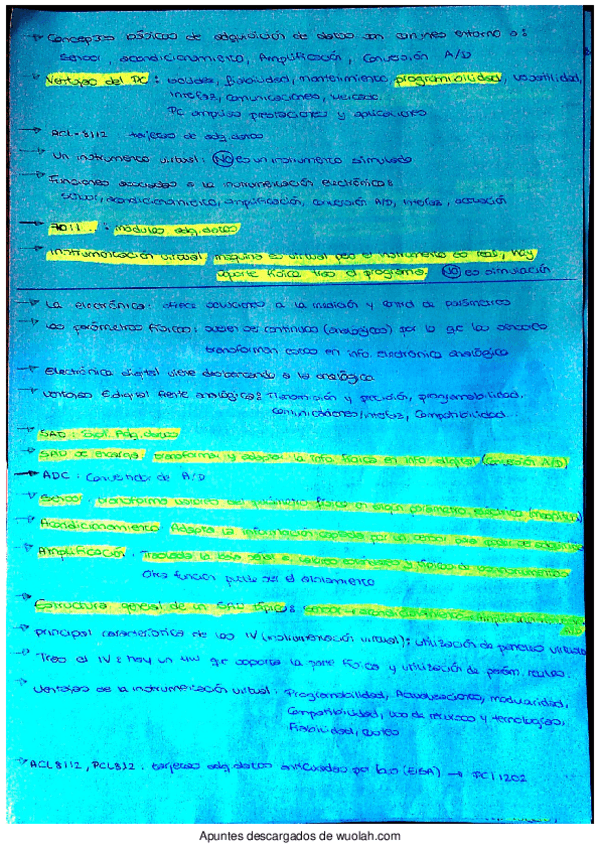 → Conceptos básicos de adquisición de datos son comunes entorno a:
Sensor, acondicionamiento, Amplificación, Conversión A/D
→ Ventajas del PC: fiabilidad, mantenimiento programabilidad, versatilidad,
Interfaz, comunicaciones,
PC amplias prestaciones y aplicaciones
→ ACL-8112 tarjetas de adq. datos
→ Un instrumento virtual: NO es un instrumento simulado
→ Funciones asociadas a la instrumentación electrónica:
sensor, acondicionamiento, amplificación, conversión A/D, interfaz, actuación
→ : módulos adq. datos
→ Instrumentación virtual: máquina es virtual pero el instrumento es real, hay
soporte físico tras el programa. NO es simulación
→ La electrónica: ofrece soluciones a la medición y control de parámetros
→ Los parámetros físicos: suelen ser continuos (analógicos) por lo que los sensores
transforman estos en info. electrónica analógica
→ Electrónica digital viene desbancando a la analógica
→ Ventajas E.digital frente analógica: Transmisión y precisión, programabilidad,
comunicaciones/interfaz, Compatibilidad...
→ SAD: Adq. datos
→ SAD se encarga: transformar y adaptar la info. física en info. digital (conversión A/D)
→ ADC: Convertidor de A/D
→ Sensor: transforma valores del parámetro físico en algún parámetro eléctrico
→ Acondicionamiento: Adapta la información captada por un sensor
→ Amplificación: Traslada la
Otra función puede ser el aislamiento
→ Estructura general de un SAD típico: sensor → acondicionamiento → amplificación →
A/D
→ principal característica de los IV (instrumentación virtual): utilización de paneles virtuales
→ Tras el IV: hay un HW que soporta la parte física y utilización de parám. reales.
→ Ventajas de la instrumentación virtual: Programabilidad, Actualizaciones, modularidad,
Compatibilidad, uso de recursos y tecnologías,
Fiabilidad, costes
→ ACL8112, PCL812: tarjetas adq. datos anticuadas por bus (EISA) → PCI1202
Apuntes descargados de wuolah.com